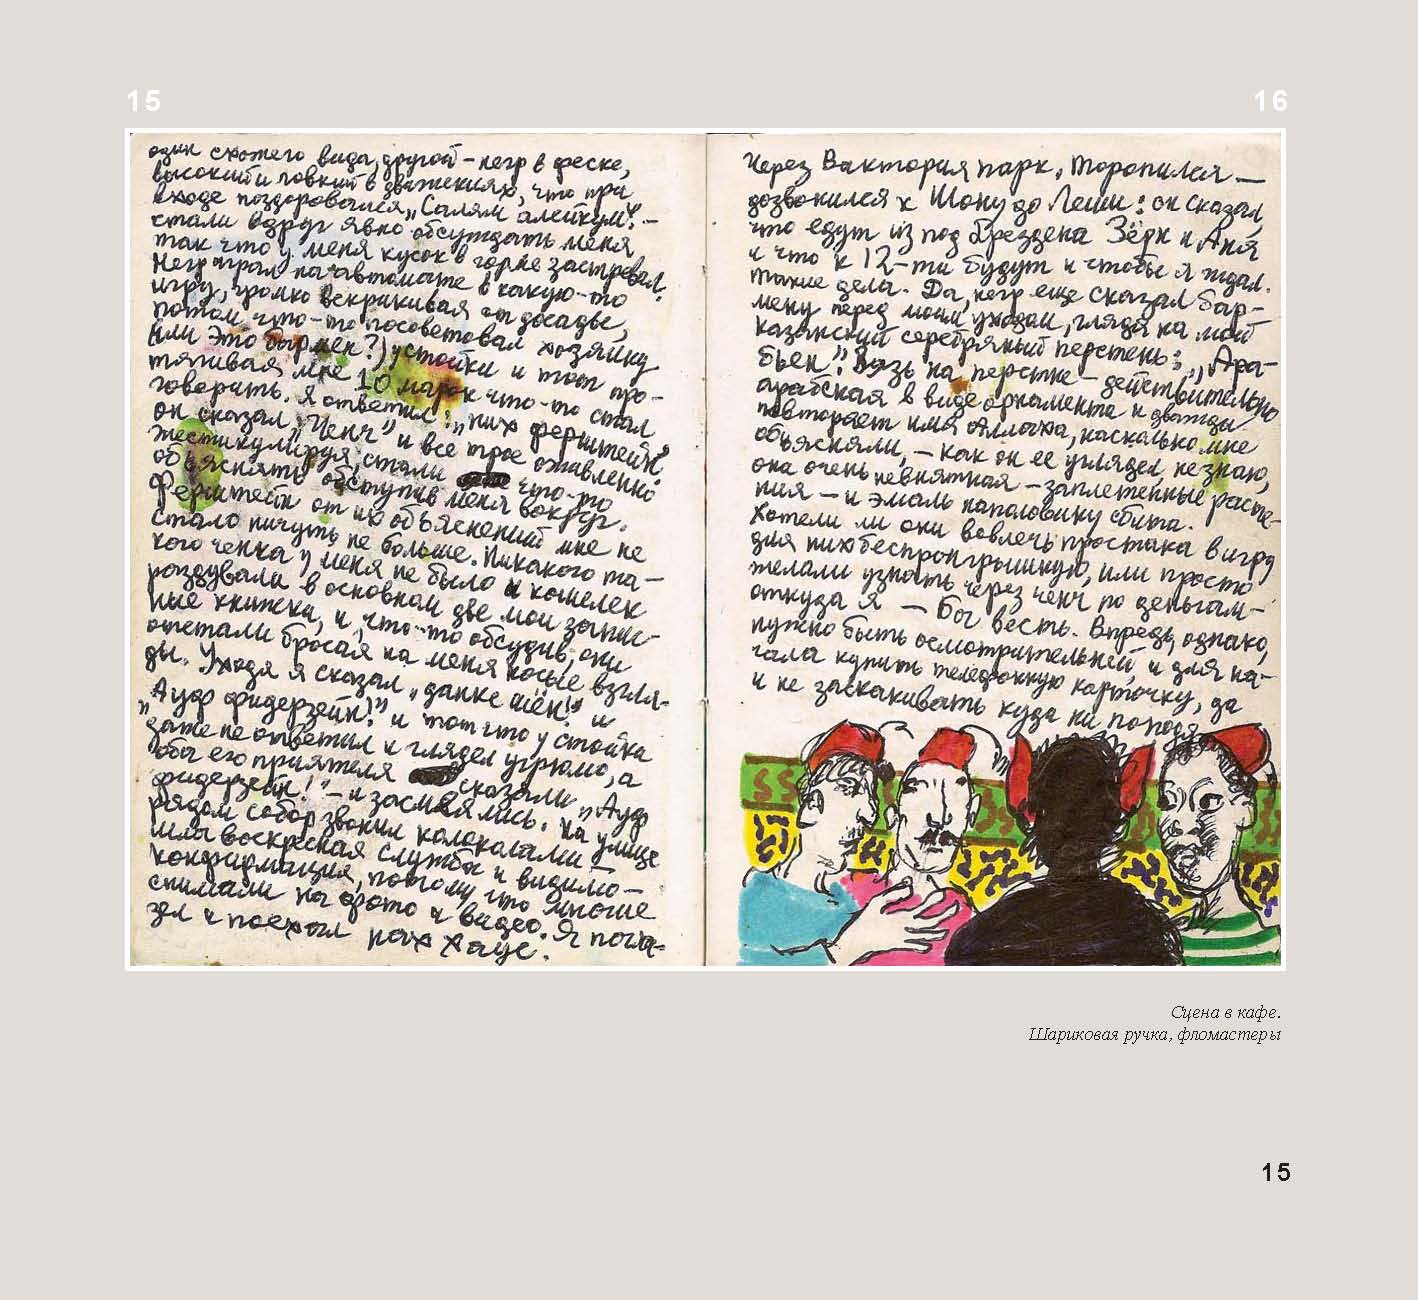 15
16
один схожего вида, другой – негр в феске,
высокий и ловкий в движениях, что при
входе поздоровался „Салям алейкум!" –
стали вдруг явно обсуждать меня
так что у меня кусок в горле застревал.
Негр играл на автомате в какую-то
игру, громко вскрикивая от досады,
потом что-то посоветовал хозяину
(или это бармен?) у стойки и тот про-
тягивая мне 10 марок что-то стал
говорить. Я ответил: „них ферштейн"
он сказал „Ченч" и все трое оживленно
жестикулируя, стали что-то
объяснять обступив меня вокруг.
Ферштейн от их объяснений мне не
стало ничуть не больше. Никакого та-
кого ченча у меня не было и кошелек
раздували в основном две мои запис-
ные книжки, и, что-то обсудив, они
отстали бросая на меня косые взгля-
ды. Уходя я сказал „данке шён!" и
„Ауф фидерзейн!" и тот что у стойки
даже не ответил и глядел угрюмо, а
оба его приятеля сказали „Ауф
фидерзейн!" – и засмеялись. На улице
рядом собор звонил колоколами –
шла воскресная служба и видимо –
конфирмация, потому что многие
снимали на фото и видео. Я погла-
зел и поехал нах хаус.
Через Виктория парк, торопился –
дозвонился к Шону до Леши: он сказал,
что едут из под Дрездена Зёрк и Аня
и что к 12-ти будут и чтобы я ждал.
Такие дела. Да, негр еще сказал бар-
мену перед моим уходом, глядя на мой
казанский серебряный перстень: „Ара-
бьен". Вязь на перстне – действительно
арабская в виде орнамента и дважды
повторяет имя Аллаха, насколько мне
объясняли, – как он ее углядел, не знаю,
она очень невнятная – заплетенные расте-
ния – и эмаль наполовину сбита.
Хотели ли они вовлечь простака в игру
для них беспроигрышную, или просто
желали узнать через ченч по деньгам –
откуда я – Бог весть. Впредь, однако,
нужно быть осмотрительней, и для на-
чала купить телефонную карточку, да
и не заскакивать куда ни попадя.
Сцена в кафе.
Шариковая ручка, фломастеры
15